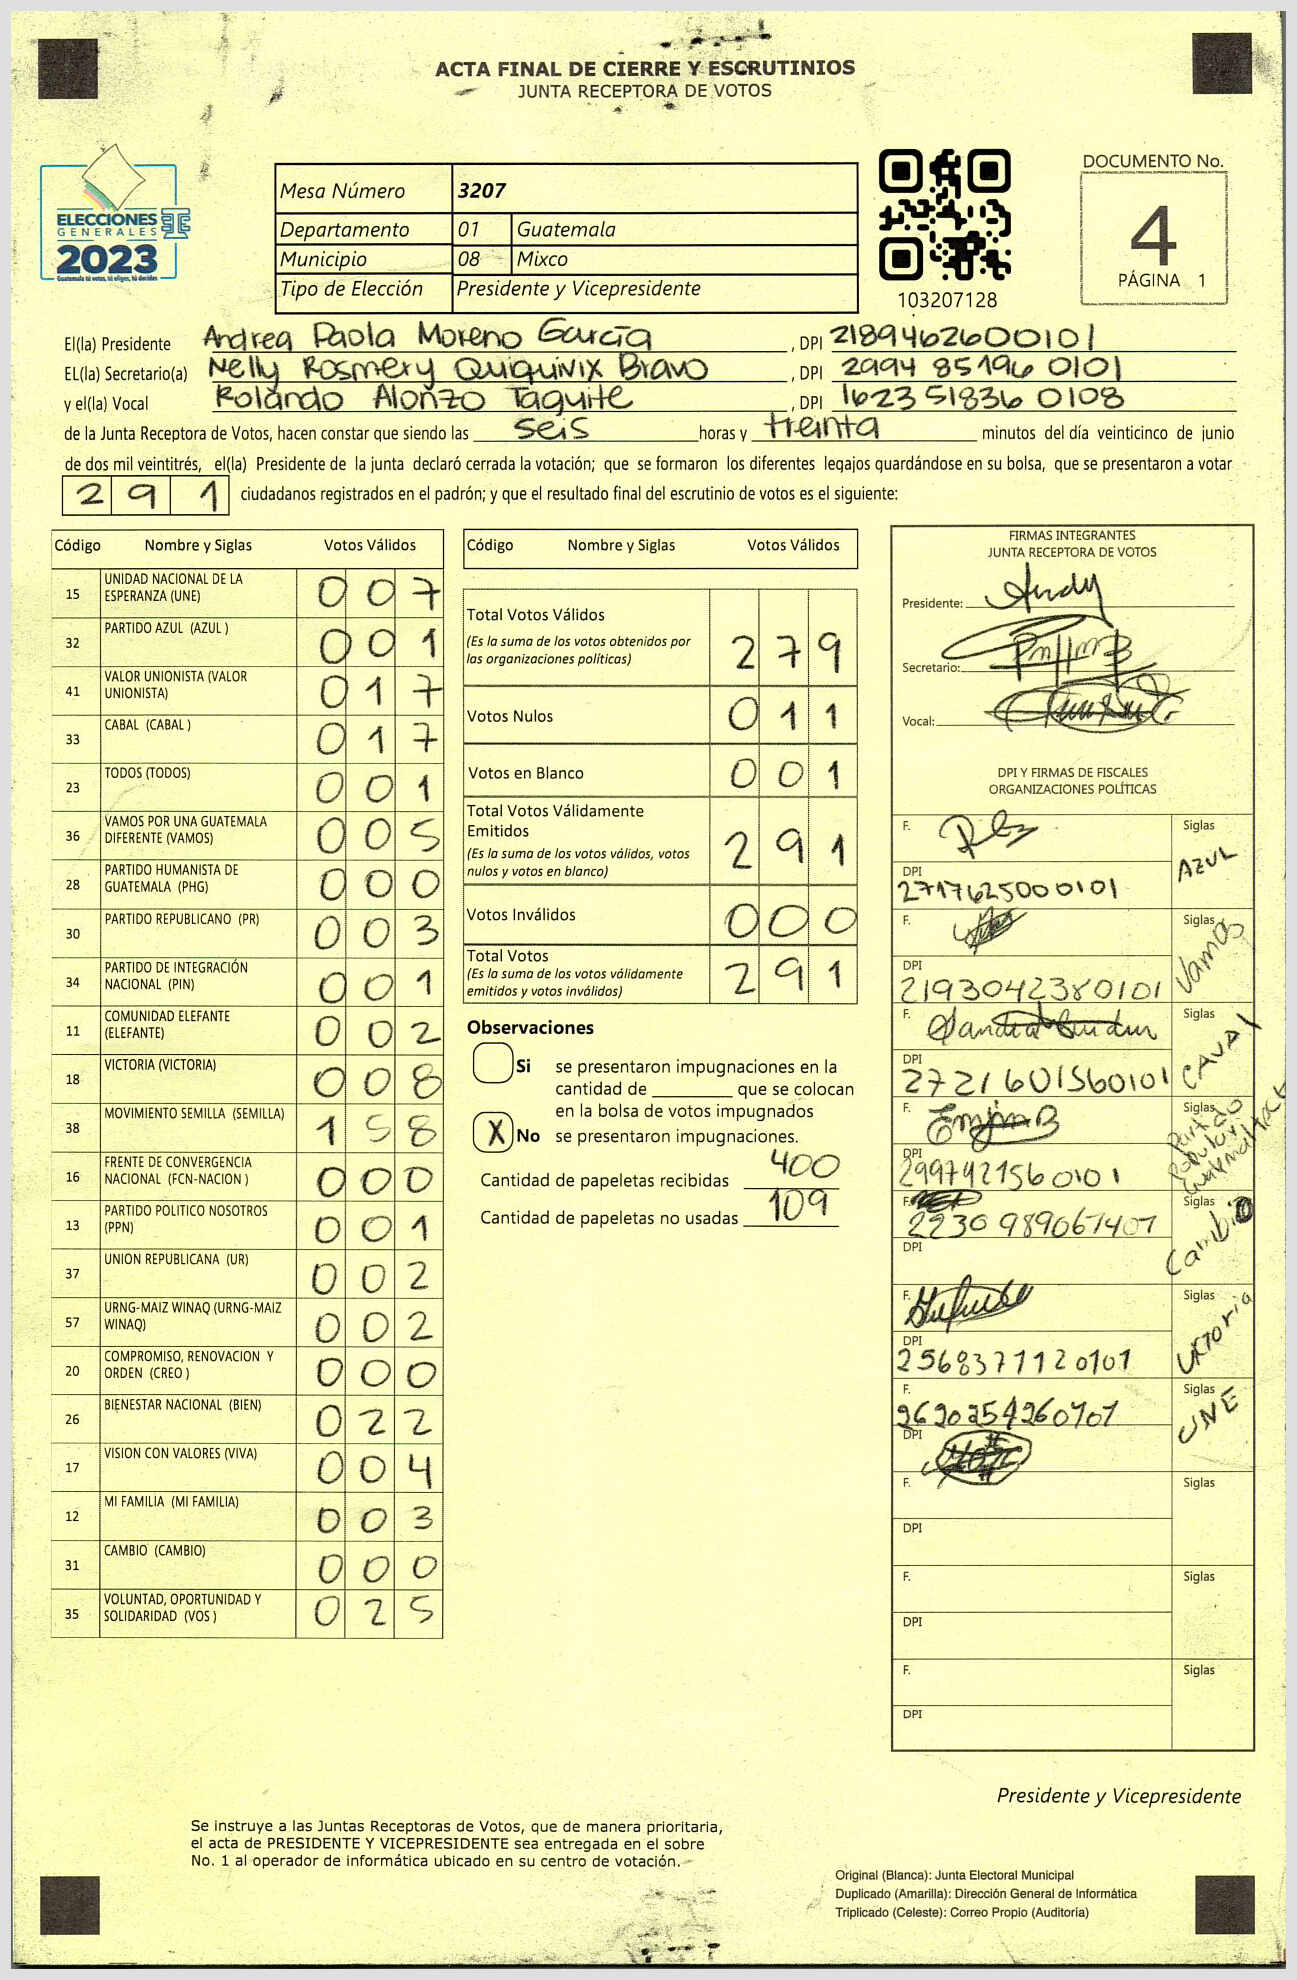 ACTA FINAL DE CIERRE Y ESCRUTINIOS
JUNTA RECEPTORA DE VOTOS
ELECCIONES
GENERALES
2023
Guatemala tú votas, tú eliges, tú decides
Mesa Número 3207
Departamento 01 Guatemala
Municipio 08 Mixco
Tipo de Elección Presidente y Vicepresidente
103207128
DOCUMENTO No.
4
PÁGINA 1
El(la) Presidente Andrea Paola Moreno García, DPI 2189462600101
EL(la) Secretario(a) Nelly Rosmery Quiquivix Bravo, DPI 2994 85196 0101
y el(la) Vocal Rolando Alonzo Taquite, DPI 1623518360108
de la Junta Receptora de Votos, hacen constar que siendo las seis horas y treinta minutos del día veinticinco de junio
de dos mil veintitrés, el(la) Presidente de la junta declaró cerrada la votación; que se formaron los diferentes legajos quardándose en su bolsa, que se presentaron a votar
291 ciudadanos registrados en el padrón; y que el resultado final del escrutinio de votos es el siguiente:
Código Nombre y Siglas Votos Válidos
15 UNIDAD NACIONAL DE LA ESPERANZA (UNE) 007
32 PARTIDO AZUL (AZUL ) 001
41 VALOR UNIONISTA (VALOR UNIONISTA) 017
33 CABAL (CABAL ) 017
23 TODOS (TODOS) 001
36 VAMOS POR UNA GUATEMALA DIFERENTE (VAMOS) 005
28 PARTIDO HUMANISTA DE GUATEMALA (PHG) 000
30 PARTIDO REPUBLICANO (PR) 003
34 PARTIDO DE INTEGRACIÓN NACIONAL (PIN) 001
11 COMUNIDAD ELEFANTE (ELEFANTE) 002
18 VICTORIA (VICTORIA) 008
38 MOVIMIENTO SEMILLA (SEMILLA) 158
16 FRENTE DE CONVERGENCIA NACIONAL (FCN-NACION ) 000
13 PARTIDO POLITICO NOSOTROS (PPN) 001
37 UNION REPUBLICANA (UR) 002
57 URNG-MAIZ WINAQ (URNG-MAIZ WINAQ) 002
20 COMPROMISO, RENOVACION Y ORDEN (CREO ) 000
26 BIENESTAR NACIONAL (BIEN) 022
17 VISION CON VALORES (VIVA) 004
12 MI FAMILIA (MI FAMILIA) 003
31 CAMBIO (CAMBIO) 000
35 VOLUNTAD, OPORTUNIDAD Y SOLIDARIDAD (VOS ) 025
Código Nombre y Siglas Votos Válidos
Total Votos Válidos 279
(Es la suma de los votos obtenidos por
las organizaciones políticas)
Votos Nulos 011
Votos en Blanco 001
Total Votos Válidamente
Emitidos 291
(Es la suma de los votos válidos, votos
nulos y votos en blanco)
Votos Inválidos 000
Total Votos 291
(Es la suma de los votos válidamente
emitidos y votos inválidos)
Observaciones
Si se presentaron impugnaciones en la
cantidad de ________ que se colocan
en la bolsa de votos impugnados
X No se presentaron impugnaciones.
Cantidad de papeletas recibidas 400
Cantidad de papeletas no usadas 109
FIRMAS INTEGRANTES
JUNTA RECEPTORA DE VOTOS
Presidente: Andy
Secretario:
Vocal:
DPI Y FIRMAS DE FISCALES
ORGANIZACIONES POLÍTICAS
F. Siglas AZUL
DPI 2717625000101
F. Siglas Vamos
DPI 2193042380101
F. Siglas CAVAL
DPI 2721601560101
F. Siglas Partido
DPI 2997421560101
F. 2230989061401 Siglas Cambio
DPI
F. Siglas Victoria
DPI 2568371120101
F. 2620254260101 Siglas UNE
DPI
F. Siglas
DPI
F. Siglas
DPI
F. Siglas
DPI
Presidente y Vicepresidente
Se instruye a las Juntas Receptoras de Votos, que de manera prioritaria,
el acta de PRESIDENTE Y VICEPRESIDENTE sea entregada en el sobre
No. 1 al operador de informática ubicado en su centro de votación.
Original (Blanca): Junta Electoral Municipal
Duplicado (Amarilla): Dirección General de Informática
Triplicado (Celeste): Correo Propio (Auditoría)